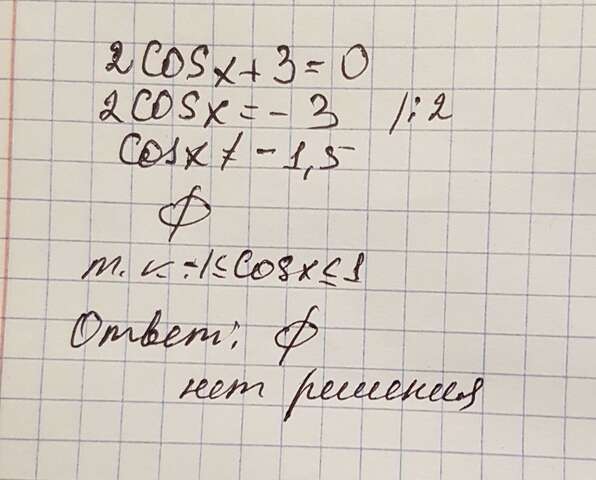 2cosx+3=0
2cosx=-3 /:2
cosx≠-1,5
∅
т.к -1≤cosx≤1
Ответ: ∅
нет решения